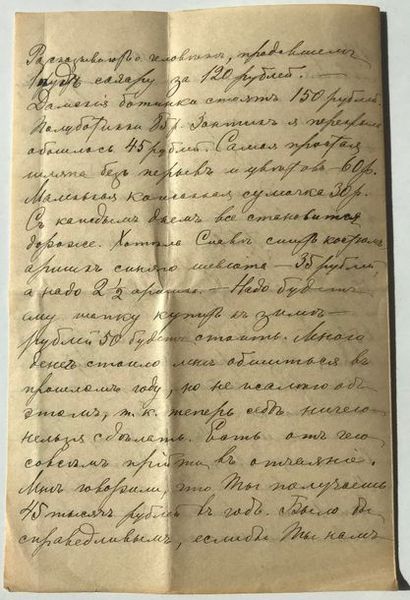 Расказываютъ о человѣкѣ, продавшемъ
1 пудъ сахару за 120 рублей. —
Дамскія ботинки стоятъ 150 рублей.
Полуботинки 85 р. Зонтикъ я покрыла
обошлось 45 рублей. Самая простая
шляпа безъ перьевъ и цвѣтовъ — 60 р.
Маленькая кожанная сумочка 30 р.
Съ каждымъ днемъ все становится
дороже. Хотѣла Славѣ сшить костюмъ
аршинъ синяго шевіота — 35 рублей
а надо 2½ аршина. — Надо будетъ
ему шапку купить къ зимѣ —
рублей 50 будетъ стоить. Много
денегъ стоило мнѣ обшиться въ
прошломъ году, но не жалѣю объ
этомъ, т. к. теперь себѣ ничего
нельзя сдѣлать. Есть отъ чего
совсѣмъ прійти въ отчаяніе.
Мнѣ говорили, что Ты получаешь
45 тысячъ рублей въ годъ. Было бы
справедливымъ, если бы Ты намъ